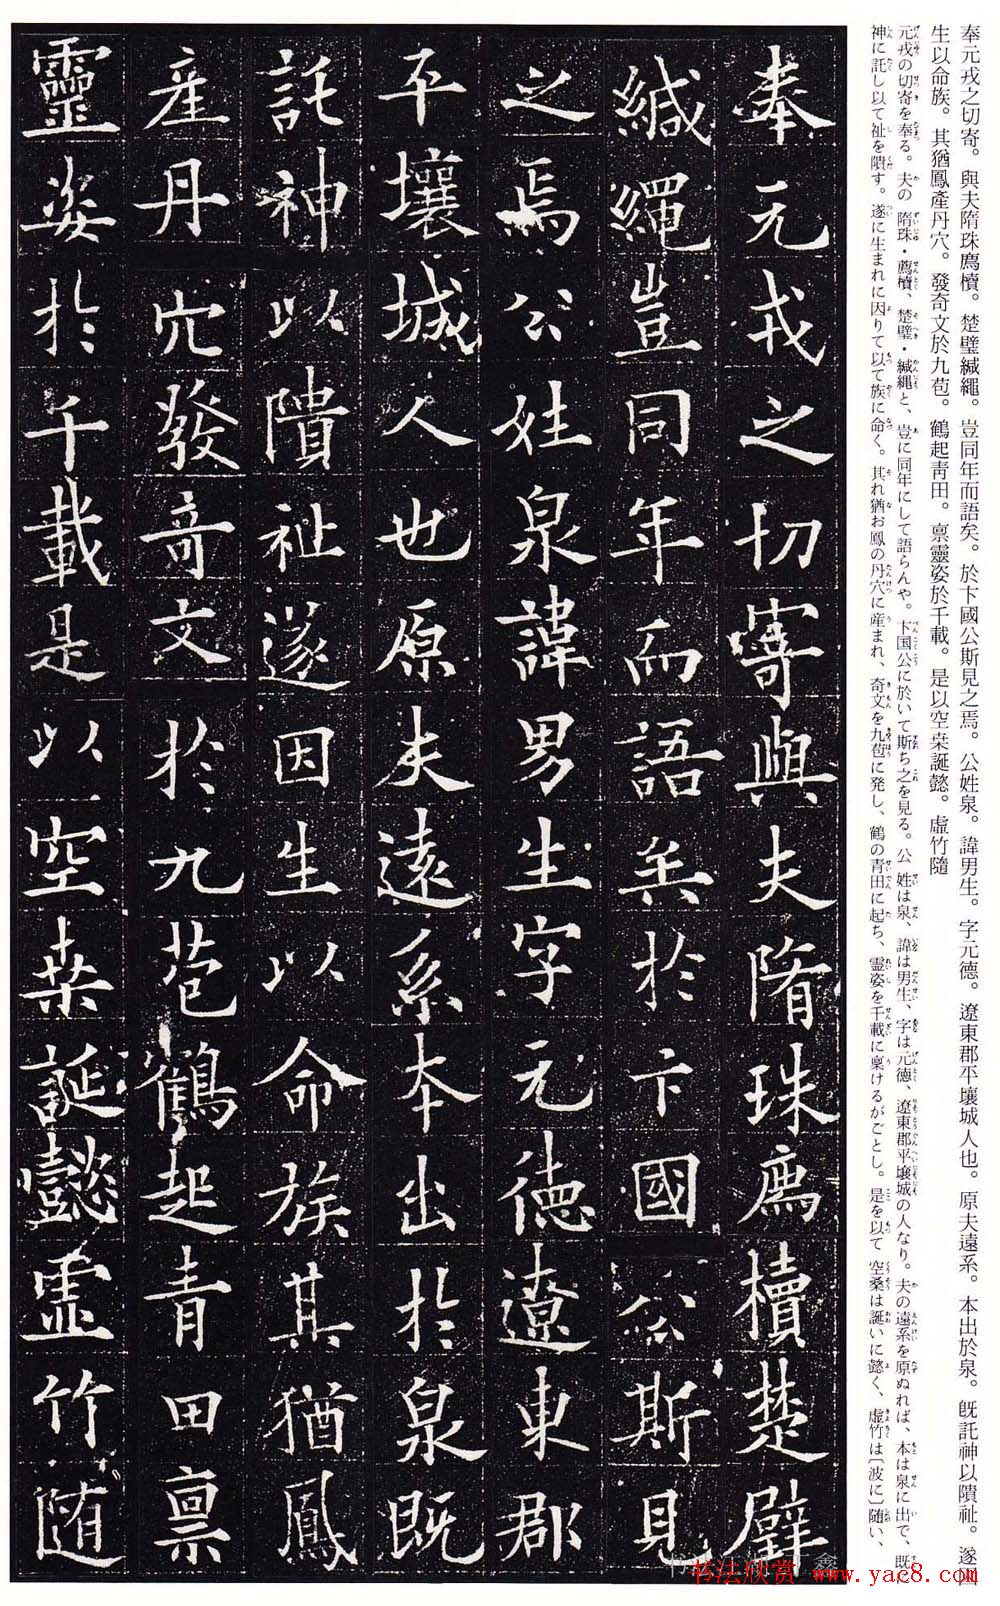 奉元戎之切寄。與夫隋珠廌櫝。楚璧緘繩。豈同年而語矣。於卞國公斯見之焉。公姓泉。諱男生。字元德。遼東郡平壤城人也。原夫遠系。本出於泉。既託神以隤祉。遂因
生以命族。其猶鳳產丹穴。發奇文於九苞。鶴起靑田。禀靈姿於千載。是以空桒誕懿。虛竹隨
元戎の切寄を奉る。夫の隋珠・廌櫝、楚璧・緘繩と、豈に同年にして語らんや。卞国公に於いて斯ち之を見る。公姓は泉、諱は男生、字は元德、遼東郡平壤城の人なり。夫の遠系を原ぬれば、本は泉に出で、既に
神に託し以て祉を隤す。遂に生まれに因りて以て族に命く。其れ猶お鳳の丹穴に産まれ、奇文を九苞に発し、鶴の青田に起ち、霊姿を千載に稟けるがごとし。是を以て空桑は誕いに懿く、虚竹は〔波に〕随い、
奉元戎之切寄與夫隋珠廌櫝楚璧
緘繩豈同年而語矣於卞國公斯見
之焉公姓泉諱男生字元德遼東郡
平壤城人也原夫遠系本出於泉既
託神以隤祉遂因生以命族其猶鳳
產丹穴發奇文於九苞鶴起青田禀
靈姿於千載是以空桒誕懿虛竹隨
书法欣赏 www.yac8.com